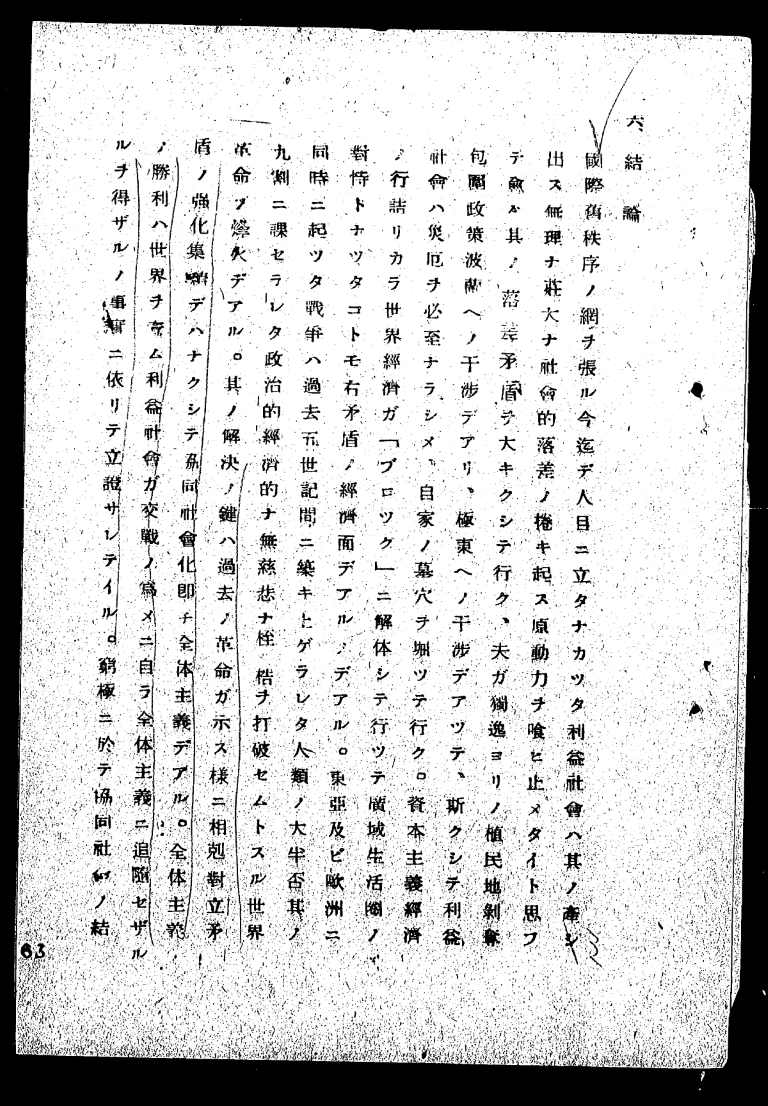 六、結論
國際舊秩序ノ網ヲ張ル今迄デ人目ニ立タナカツタ利益社會ハ其ノ產シ
出ス無理ナ莊大ナ社會的落差ノ捲キ起ス原動力ヲ喰ヒ止メタイト思フ
テ愈々其ノ落差矛盾ヲ大キクシテ行ク、夫ガ獨逸ヨリノ植民地剝奪
包圍政策波蘭ヘノ干涉デアリ、極東ヘノ干涉デアツテ、斯クシテ利益
社會ハ災厄ヲ必至ナラシメ、自家ノ墓穴ヲ堀ツテ行ク。資本主義經濟
ノ行詰リカラ世界經濟ガ「ブロツク」ニ解体シテ行ツテ廣域生活圈ノ
對恃トナツタコトモ右矛盾ノ經濟面デアルノデアル。東亞及ビ歐洲ニ
同時ニ起ツタ戰爭ハ過去五世記間ニ築キ上ゲラレタ人類ノ大半否其ノ
九割ニ課セラレタ政治的經濟的ナ無慈悲ナ桎梏ヲ打破セムトスル世界
革命ノ烽火デアル。其ノ解決ノ鍵ハ過去ノ革命ガ示ス樣ニ相剋對立矛
盾ノ強化集積デハナクシテ協同社會化卽チ全体主義デアル。全体主義
ノ勝利ハ世界ヲ蝕ム利益社會ガ交戰ノ爲メニ自ラ全体主義ニ追隨セザル
ルヲ得ザルノ事實ニ依リテ立證サレテイル。窮極ニ於テ協同社會ノ結
63